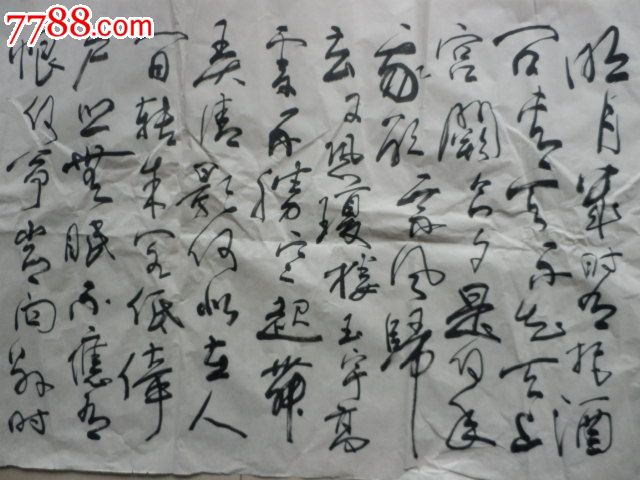 7788.com
明月幾时有把酒
问青天不知天上
宫闕今夕是何年
我欲乘风歸
去又恐瓊楼玉宇高
处不勝寒起舞
弄清影何似在人
间转朱阁低绮
户照無眠不應有
恨何事长向别时